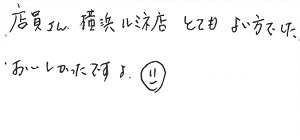 店員さん 横浜ルミネ店 とても よい方でした
おいしかったですよ。